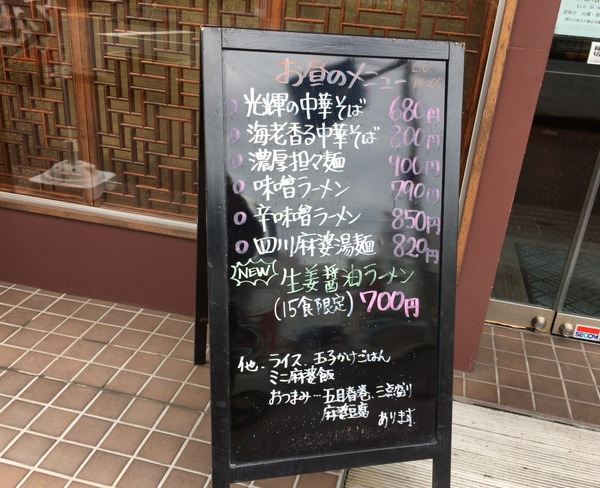 お昼のメニュー L.O.
光輝の中華そば 680円
海老香る中華そば 200円
濃厚担々麺 900円
味噌ラーメン 790円
辛味噌ラーメン 850円
四川麻婆湯麺 820円
NEW 生姜醤油ラーメン
(15食限定) 700円
他・ライス、玉子かけごはん
ミニ麻婆飯
おつまみ…五目春巻、三点盛り
麻婆豆腐 あります
SECOM